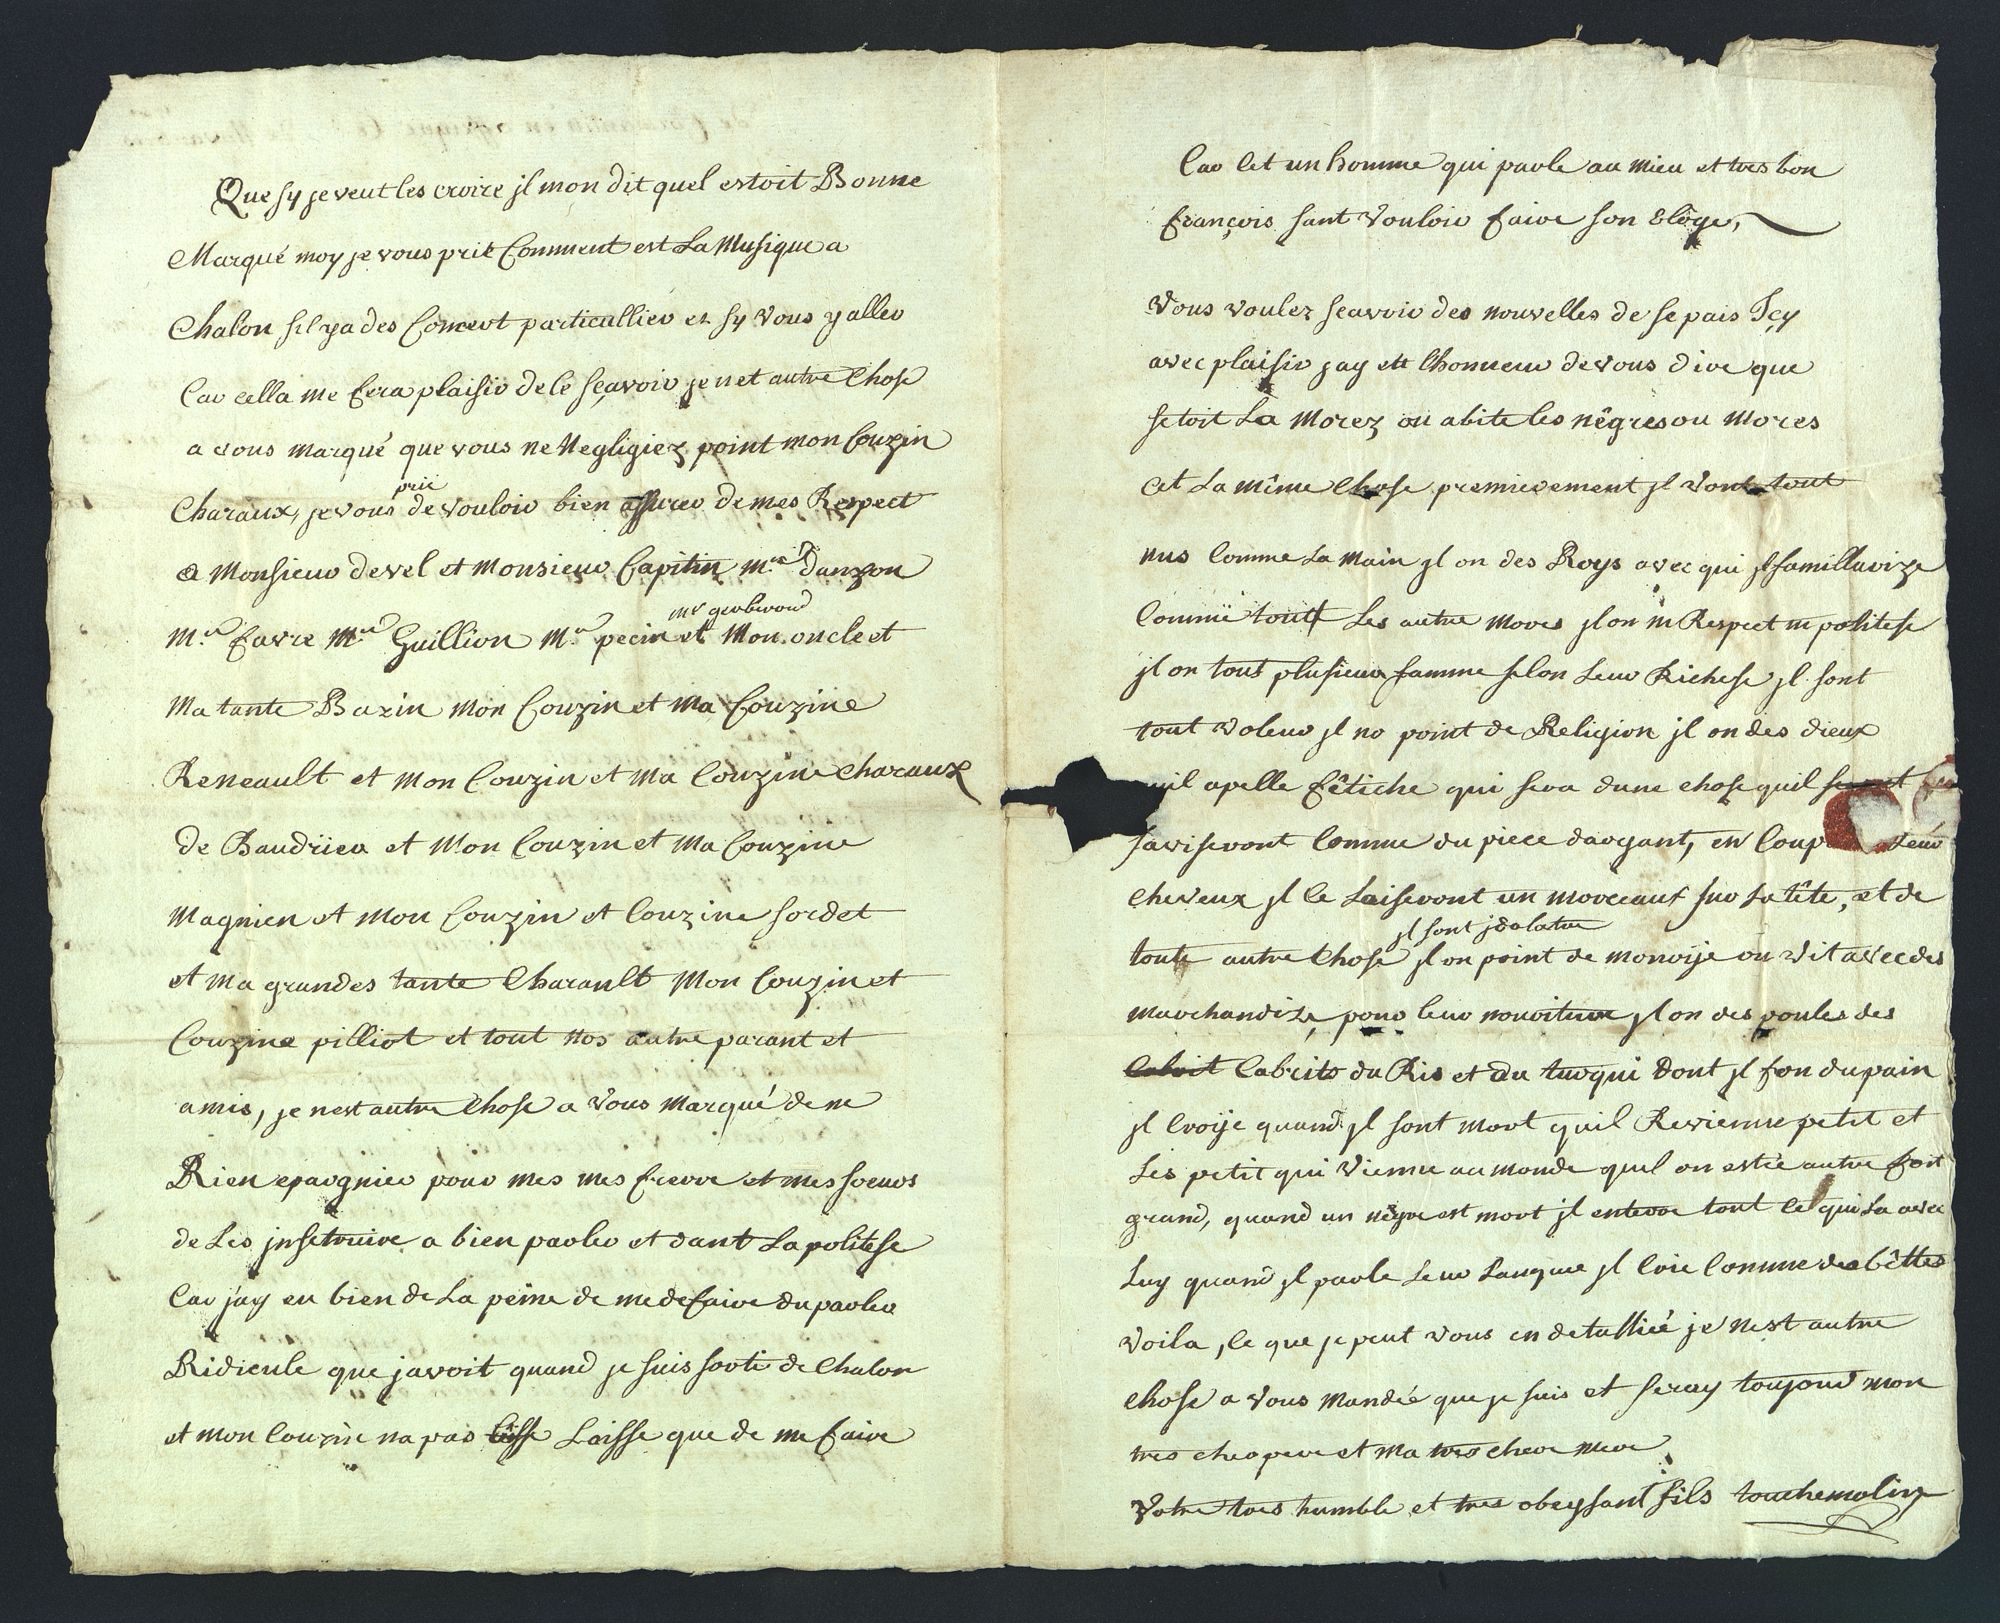 Que sy je veut les croire jl mon dit quel estoit Bonne
Marqué moy je vous prie Comment est La Musique a
Chalon sil ya des Concert particullier et sy vous y aller
Car cella me fera plaisir de le sçavoir je net autre Chose
a vous marqué que vous ne Negligiez point mon Couzin
prie
Charaux, je vous de vouloir bien assurer de mes Respect
a Monsieur devel et monsieur Capitin Mr danzon
mr gerberond
Mr favre Mr Guillion Mr pecin et Mon oncle et
Ma tante Bazin Mon Couzin et Ma Couzine
Reneault et Mon Couzin et Ma Couzine Charaux
de Baudriier et Mon Couzin et Ma Couzine
Magnien et Mon Couzin et Couzine sordet
et Ma grandes tante Charault Mon Couzin et
Couzine pilliot et tout Nos autre parant et
amis, je nest autre Chose a vous Marqué de ne
Rien epargnier pour mes mes frerre et mes soeurs
de Les jnsetruire a bien parler et dant La politese
Car jay eu bien de La peine de me defaire du parler
Ridicule que javoit quand je suis sorti de Chalon
et mon Couzin na pas Laisse que de me faire
Car Cet un homme qui parle au mieu et tres bon
françois sant vouloir faire son Eloge,
Vous voulez seavoir des nouvelles de se pais Jcy
avec plaisir jay ett Lhonneur de vous dire que
setoit La Morez ou abite les nêgres ou Mores
cet La même Chose premierement jl vont tout
nus Comme La main jl on des Roys avec qui jl familliarize
Comme tout Les autre mores jl on ni Respect ni politese
jl on tout plusieur famme selon Leur Richese jl sont
tout voleur jl no point de Religion jl on des dieux
quil apelle fêtiche qui sera dune chose quil
saviseront Comme du piece dargant, en Coup Leur
Cheveux jl Ce Laiseront un morceaux sur La tête, et de
jl sont jdolatre
toute autre Chose jl on point de monoije on vit avec des
marchandize, pour leur nouriture jl on des poules des
Cabrit Cabrits du Ris et du turqui Dont jl fon du pain
jl Croije quand jl sont mort quil Revienne petit et
Les petit qui vienne au monde quel on estée autre foit
grand, quand un nêgre est mort jl enterre tout Ce qui La avec
Luy quand jl parle Leur Langue jl Crie Comme des bêttes
voila, Ce que je peut vous en detalliée je nest autre
Chose a vous mandée que je suis et seray toujour mon
tres cher pere et Ma tres chere mere
Votre tres humble et tres obeysant fils touchemolin